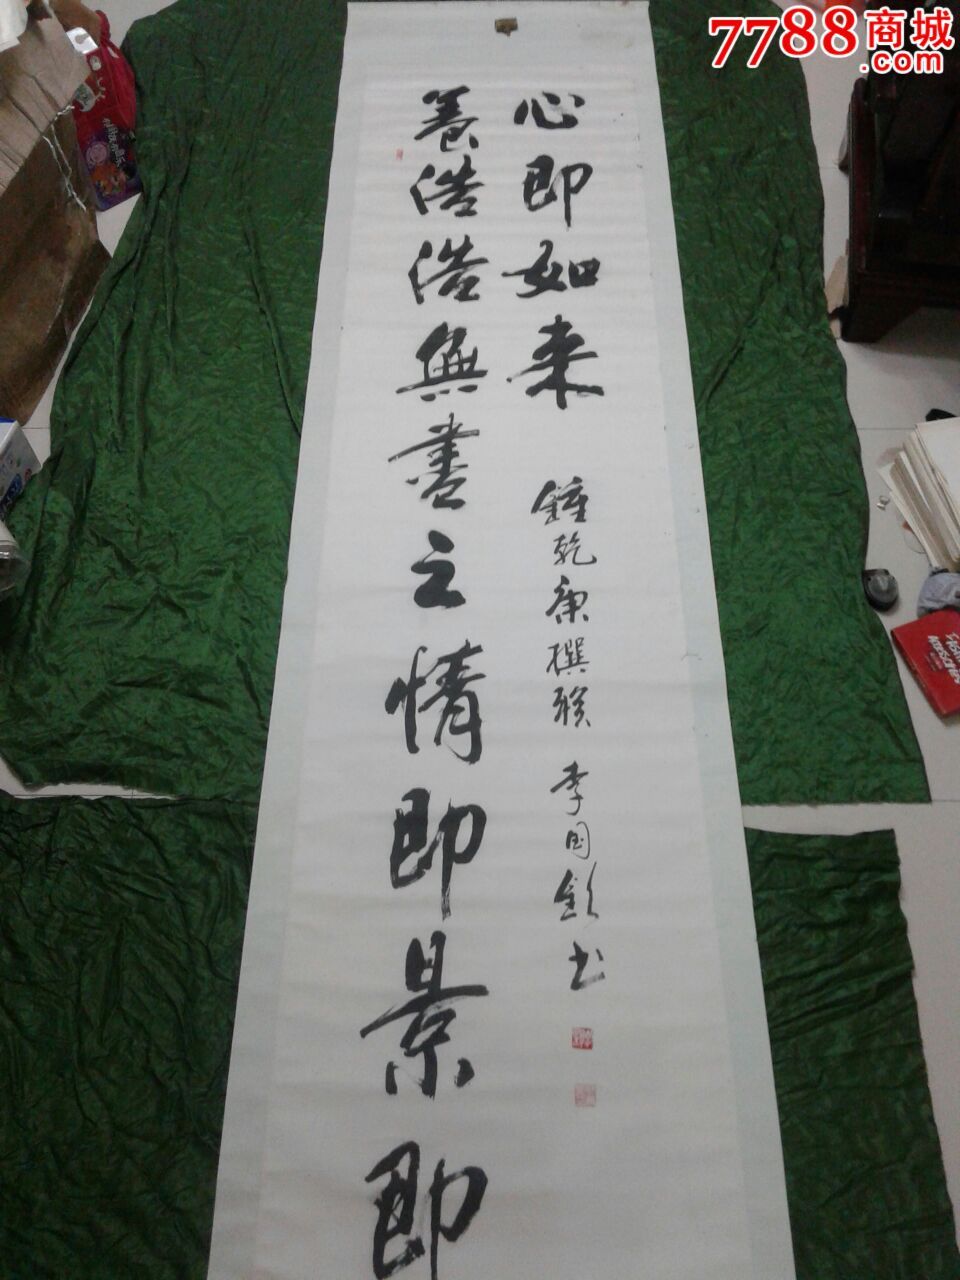 7788商城
.com
養浩浩無盡之情即景即
心即如来
鍾乾康撰聯 李国欽书